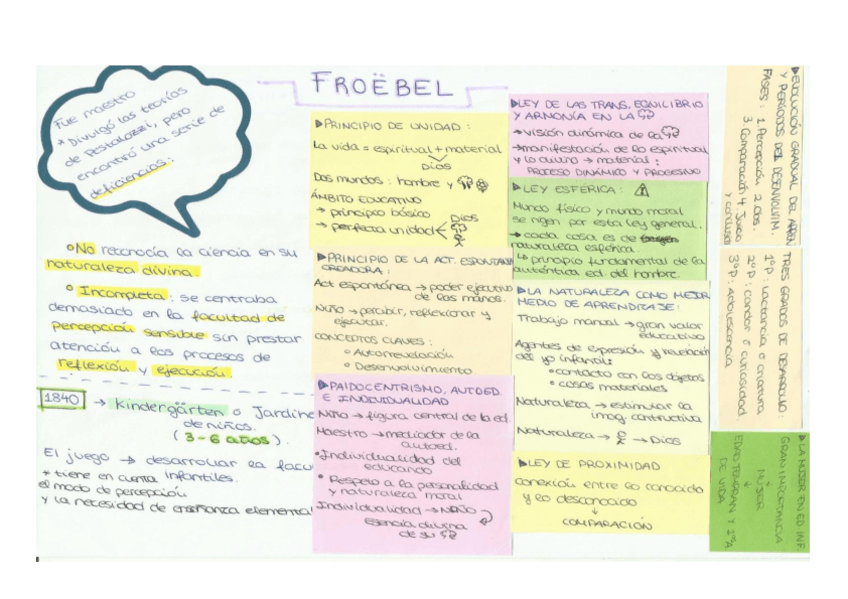 FROËBEL
Fue maestro
* Divulgó las teorías
de Pestalozzi, pero
encontró una serie de
deficiencias:
No reconocía la ciencia en su
naturaleza divina.
Incompleta: se centraba
demasiado en la facultad de
percepción sensible sin prestar
atención a los procesos de
reflexión y ejecución.
1840 → Kindergärten o Jardine
de niños.
(3-6 años).
El juego → desarrollar la facu
infantiles.
* tiene en cuenta
el modo de percepción
y la necesidad de enseñanza elemental
▶PRINCIPIO DE UNIDAD:
La vida = espiritual + material
Dios
Dos mundos: hombre y
ÁMBITO EDUCATIVO
→ principio básico
→ perfecta unidad < Dios
▶PRINCIPIO DE LA ACT. ESPONTÁN
CREADORA:
Act espontánea → poder ejecutivo
de las manos.
Niño → percibir, reflexionar y
ejecutar.
CONCEPTOS CLAVES:
Autorrevelación
Desenvolvimiento
▶PAIDOCENTRISMO, AUTOED.
E INDIVIDUALIDAD
Niño → figura central de la ed.
Maestro → mediador de la
autoed.
• Individualidad del
educando
• Respeto a la personalidad
y naturaleza moral
Individualidad → NIÑO
esencia divina
de su
▶LEY DE LAS TRANS, EQUILIBRIO
Y ARMONÍA EN LA
→ visión dinámica de la
→ manifestación de lo espiritual
y lo divino → material:
PROCESO DINÁMICO Y PROGRESIVO
▶LEY ESFÉRICA:
Mundo físico y mundo moral
se rigen por esta ley general.
→ cada cosa es de
naturaleza esférica.
↳ principio fundamental de la
auténtica ed. del hombre.
▶LA NATURALEZA COMO MEJOR
MEDIO DE APRENDIZAJE:
Trabajo manual → gran valor
educativo
Agentes de expresión y revelación
del yo infantil:
• contacto con los objetos
• cosas materiales
Naturaleza → estimular la
imag. contructiva
Naturaleza → → Dios
▶LEY DE PROXIMIDAD
Conexión entre lo conocido
y lo desconocido
↓
COMPARACIÓN
▶EVOLUCIÓN GRADUAL DEL
Y PERIODOS DEL DESENVOLVIM.
FASES: 1. Percepción 2. Obs.
3. Comparación 4. Juicio
y conclusión
TRES GRADOS DE DESARROLLO:
1ºP: Lactancia o criatura
2ºP: candor o curiosidad
3ºP: adolescencia
▶LA MUJER EN ED. INF
GRAN IMPORTANCIA
↓
MUJER
↓
EDAD TEMPRAN Y 1ºS A
DE VIDA